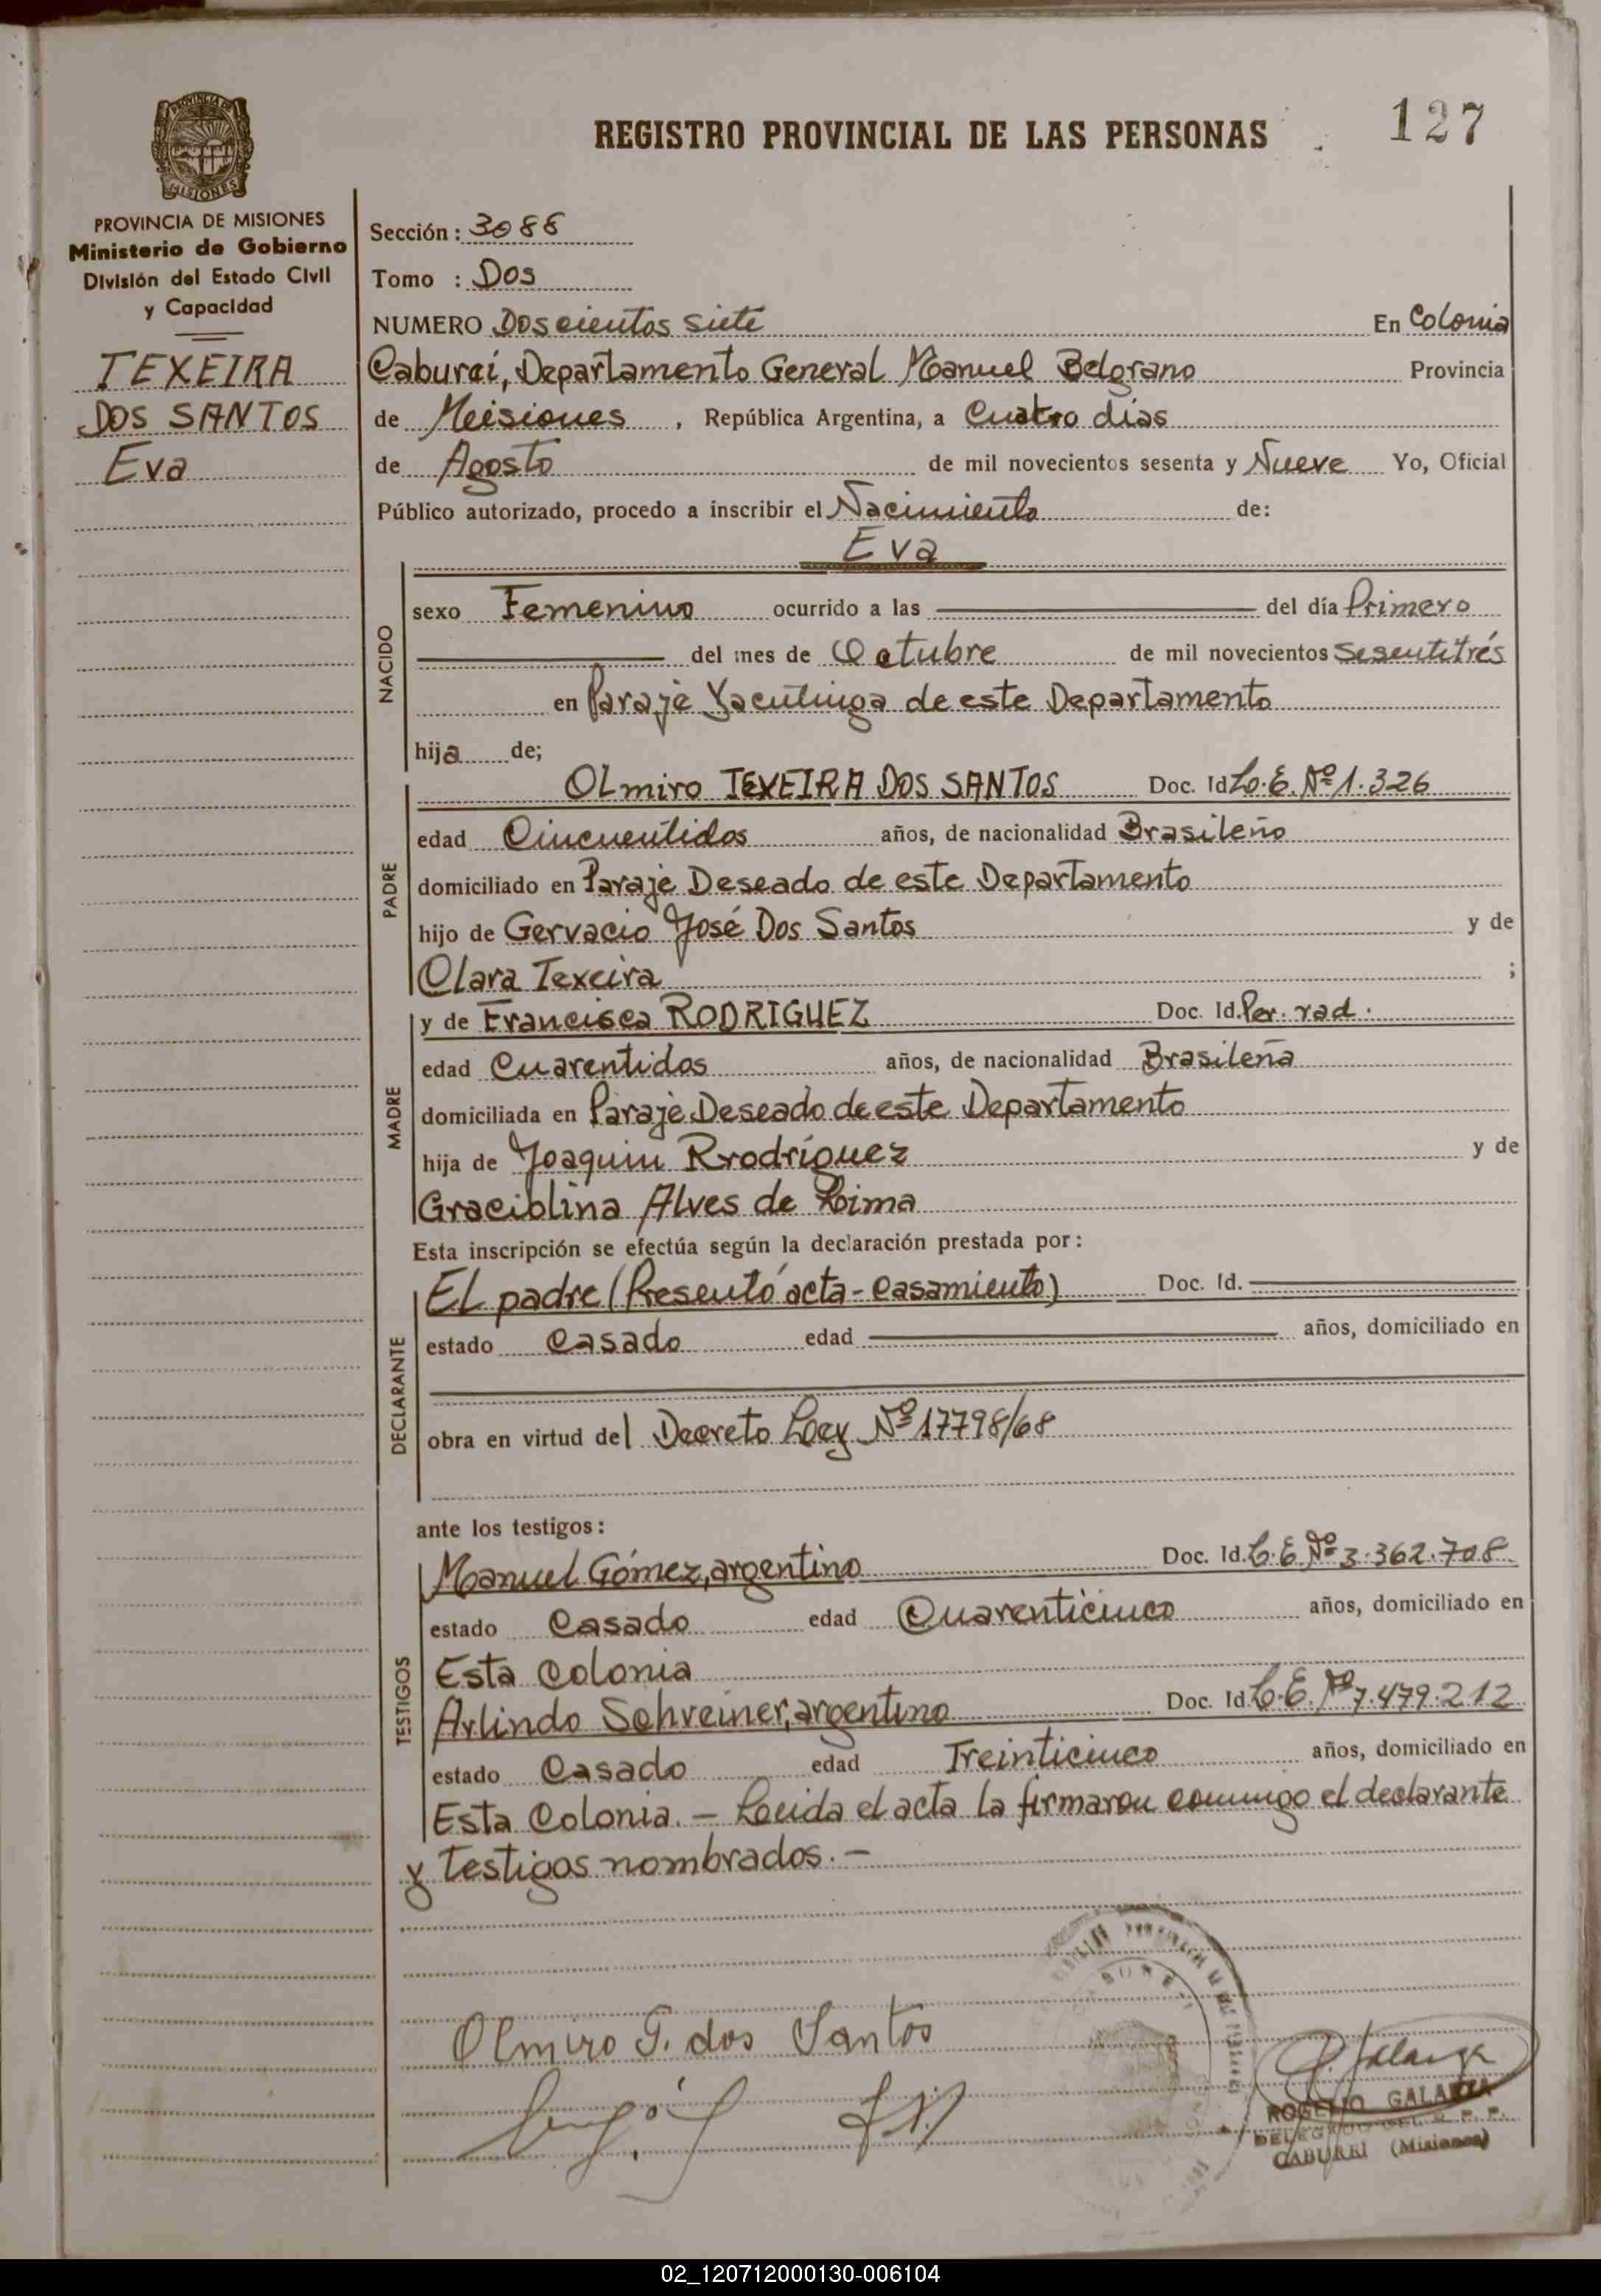 127
REGISTRO PROVINCIAL DE LAS PERSONAS
PROVINCIA DE
MISIONES
PROVINCIA DE MISIONES
Ministerio de Gobierno
División del Estado Civil
y Capacidad
TEXEIRA
DOS SANTOS
Eva
Sección: 3088
Tomo : Dos
NUMERO Doscientos siete En Colonia
Caburei, Departamento General Manuel Belgrano Provincia
de Misiones, República Argentina, a Cuatro días
de Agosto de mil novecientos sesenta y Nueve Yo, Oficial
Público autorizado, procedo a inscribir el Nacimiento de:
Eva
NACIDO
sexo Femenino ocurrido a las del día Primero
del mes de Octubre de mil novecientos Sesentitrés
en Paraje Yacutinga de este Departamento
hija de;
PADRE
Olmiro TEXEIRA DOS SANTOS Doc. Id L.E. Nº 1.326
edad Cincuentidos años, de nacionalidad Brasileño
domiciliado en Paraje Deseado de este Departamento
hijo de Gervacio José Dos Santos y de
Clara Texeira ;
MADRE
y de Francisca RODRIGUEZ Doc. Id. Per. rad.
edad Cuarentidos años, de nacionalidad Brasileña
domiciliada en Paraje Deseado de este Departamento
hija de Joaquin Rrodríguez y de
Graciolina Alves de Lima
Esta inscripción se efectúa según la declaración prestada por:
DECLARANTE
El padre (Presentó acta-casamiento) Doc. Id.
estado Casado edad años, domiciliado en
obra en virtud del Decreto Ley Nº 17798/68
ante los testigos:
TESTIGOS
Manuel Gómez, argentino Doc. Id. L.E. Nº 3.362.708
estado Casado edad Cuarenticinco años, domiciliado en
Esta Colonia
Arlindo Schreiner, argentino Doc. Id. L.E. Nº 7.479.212
estado Casado edad Treinticinco años, domiciliado en
Esta Colonia. - Leida el acta la firmaron conmigo el declarante
y testigos nombrados. -
Olmiro T. dos Santos
ROGELIO GALARZA
DELEGADO DEL R. P. P.
CABUREI (Misiones)
02_120712000130-006104